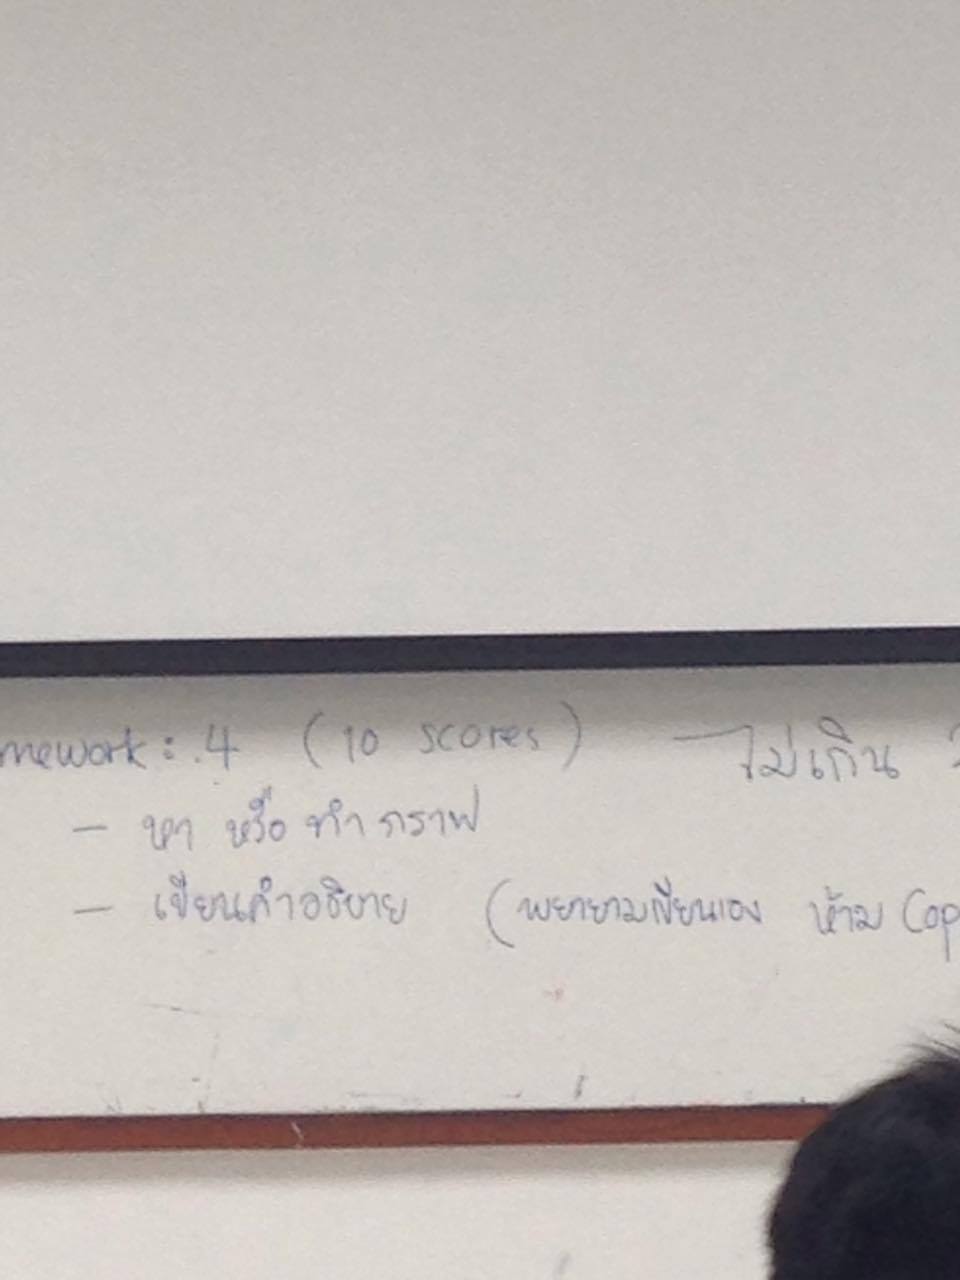 mework: 4 (10 scores) — ไม่เกิน
— หา หรือ ทำ กราฟ
— เขียนคำอธิบาย (พยายามเขียนเอง ห้าม Cop